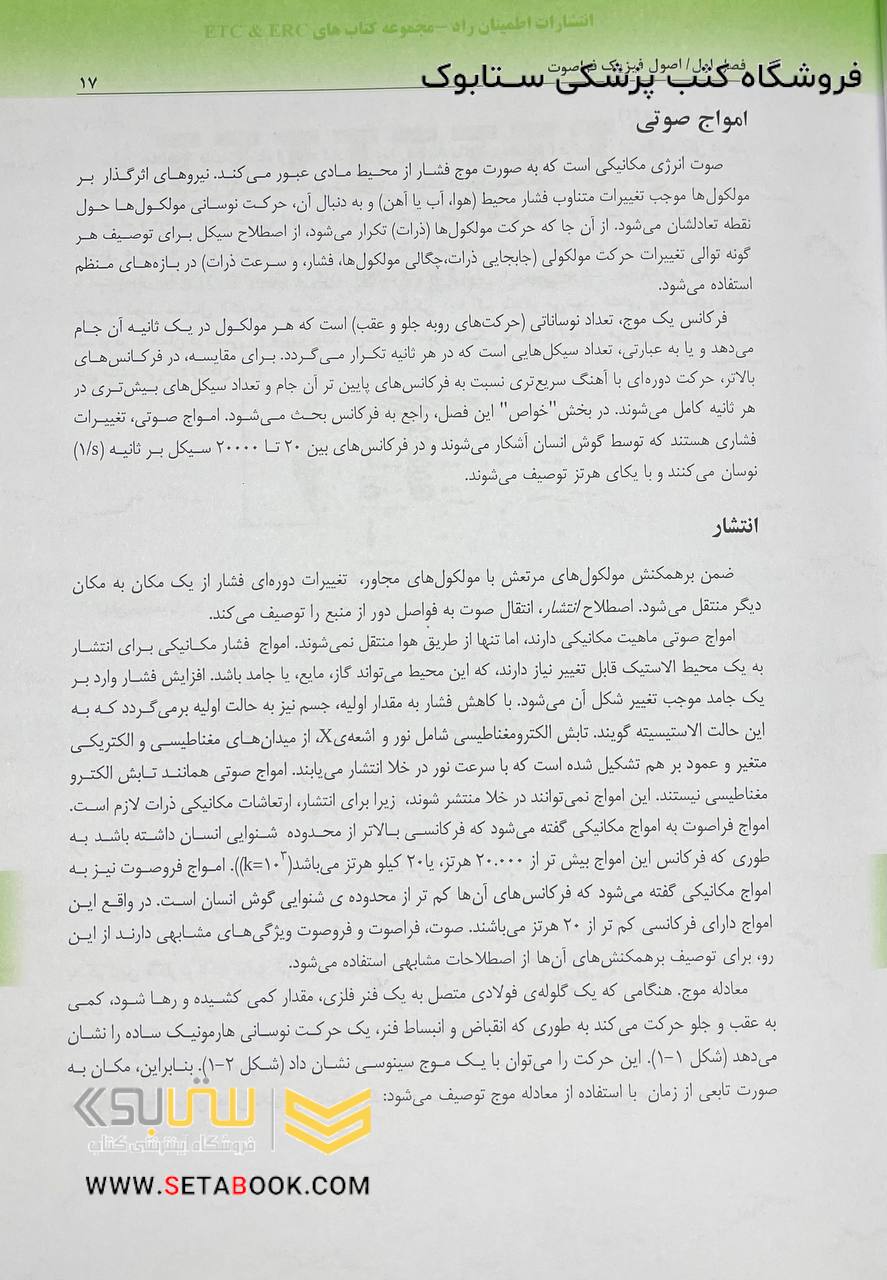 انتشارات اطمینان راد -مجموعه کتاب های ETC & ERC
فصل اول/ اصول فیزیک فراصوت
۱۷
فروشگاه کتب پزشکی ستابوک
امواج صوتی
صوت انرژی مکانیکی است که به صورت موج فشار از محیط مادی عبور می‌کند. نیروهای اثرگذار بر
مولکول‌ها موجب تغییرات متناوب فشار محیط (هوا، آب یا آهن) و به دنبال آن، حرکت نوسانی مولکول‌ها حول
نقطه تعادلشان می‌شود. از آن جا که حرکت مولکول‌ها (ذرات) تکرار می‌شود، از اصطلاح سیکل برای توصیف هر
گونه توالی تغییرات حرکت مولکولی (جابجایی ذرات،چگالی مولکول‌ها، فشار، و سرعت ذرات) در بازه‌های منظم
استفاده می‌شود.
فرکانس یک موج، تعداد نوساناتی (حرکت‌های روبه جلو و عقب) است که هر مولکول در یک ثانیه آن جام
می‌دهد و یا به عبارتی، تعداد سیکل‌هایی است که در هر ثانیه تکرار می‌گردد. برای مقایسه، در فرکانس‌های
بالاتر، حرکت دوره‌ای با آهنگ سریع‌تری نسبت به فرکانس‌های پایین تر آن جام و تعداد سیکل‌های بیش‌تری در
هر ثانیه کامل می‌شوند. در بخش"خواص" این فصل، راجع به فرکانس بحث می‌شود. امواج صوتی، تغییرات
فشاری هستند که توسط گوش انسان آشکار می‌شوند و در فرکانس‌های بین ۲۰ تا ۲۰۰۰۰ سیکل بر ثانیه (۱/s)
نوسان می‌کنند و با یکای هرتز توصیف می‌شوند.
انتشار
ضمن برهمکنش مولکول‌های مرتعش با مولکول‌های مجاور، تغییرات دوره‌ای فشار از یک مکان به مکان
دیگر منتقل می‌شود. اصطلاح انتشار، انتقال صوت به فواصل دور از منبع را توصیف می‌کند.
امواج صوتی ماهیت مکانیکی دارند، اما تنها از طریق هوا منتقل نمی‌شوند. امواج فشار مکانیکی برای انتشار
به یک محیط الاستیک قابل تغییر نیاز دارند، که این محیط می‌تواند گاز، مایع، یا جامد باشد. افزایش فشار وارد بر
یک جامد موجب تغییر شکل آن می‌شود. با کاهش فشار به مقدار اولیه، جسم نیز به حالت اولیه برمی‌گردد که به
این حالت الاستیسیته گویند. تابش الکترومغناطیسی شامل نور و اشعه‌یX، از میدان‌های مغناطیسی و الکتریکی
متغیر و عمود بر هم تشکیل شده است که با سرعت نور در خلا انتشار می‌یابند. امواج صوتی همانند تابش الکترو
مغناطیسی نیستند. این امواج نمی‌توانند در خلا منتشر شوند، زیرا برای انتشار، ارتعاشات مکانیکی ذرات لازم است.
امواج فراصوت به امواج مکانیکی گفته می‌شود که فرکانسی بالاتر از محدوده شنوایی انسان داشته باشد به
طوری که فرکانس این امواج بیش تر از ۲۰.۰۰۰ هرتز، یا۲۰ کیلو هرتز می‌باشد(k=۱۰³)). امواج فروصوت نیز به
امواج مکانیکی گفته می‌شود که فرکانس‌های آن‌ها کم تر از محدوده ی شنوایی گوش انسان است. در واقع این
امواج دارای فرکانسی کم تر از ۲۰ هرتز می‌باشند. صوت، فراصوت و فروصوت ویژگی‌های مشابهی دارند از این
رو، برای توصیف برهمکنش‌های آن‌ها از اصطلاحات مشابهی استفاده می‌شود.
معادله موج. هنگامی که یک گلوله‌ی فولادی متصل به یک فنر فلزی، مقدار کمی کشیده و رها شود، کمی
به عقب و جلو حرکت می کند به طوری که انقباض و انبساط فنر، یک حرکت نوسانی هارمونیک ساده را نشان
می‌دهد (شکل ۱-۱). این حرکت را می‌توان با یک موج سینوسی نشان داد (شکل ۲-۱). بنابراین، مکان به
صورت تابعی از زمان با استفاده از معادله موج توصیف می‌شود:
ستابوک
فروشگاه اینترنتی کتاب
WWW.SETABOOK.COM